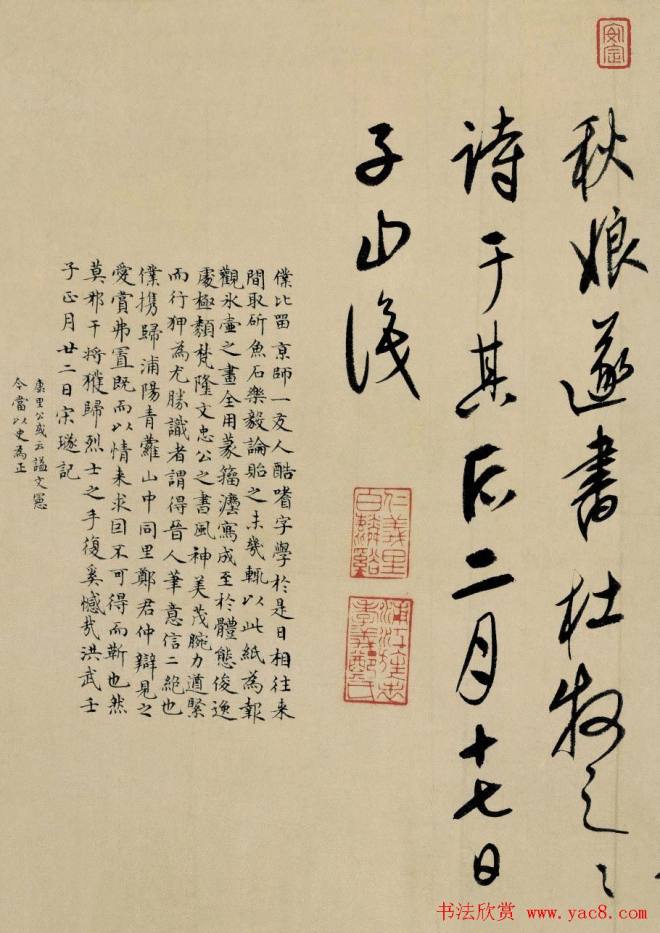 安定
秋娘遂書杜牧之之
詩于其后二月十七日
子山識
仁義里
白麟谿
浦江旌忠
孝義鄭氏
僕比留京師一友人酷嗜字學於是日相往来
間取斫魚石樂毅論貽之未幾輒以此紙為報
觀氷壺之畫全用篆籀灋寫成至於體態俊逸
處極類梵隆文忠公之書風神美茂腕力遒緊
而行狎為尤勝識者謂得晉人筆意信二絶也
僕携歸浦陽青蘿山中同里鄭君仲辯見之
愛賞弗置既而以情来求因不可得而靳也然
莫邪干將獲歸烈士之手復奚憾哉洪武壬
子正月廿二日宋璲記
里公或云謚文憲
今當以史為正
书法欣赏 www.yac8.com